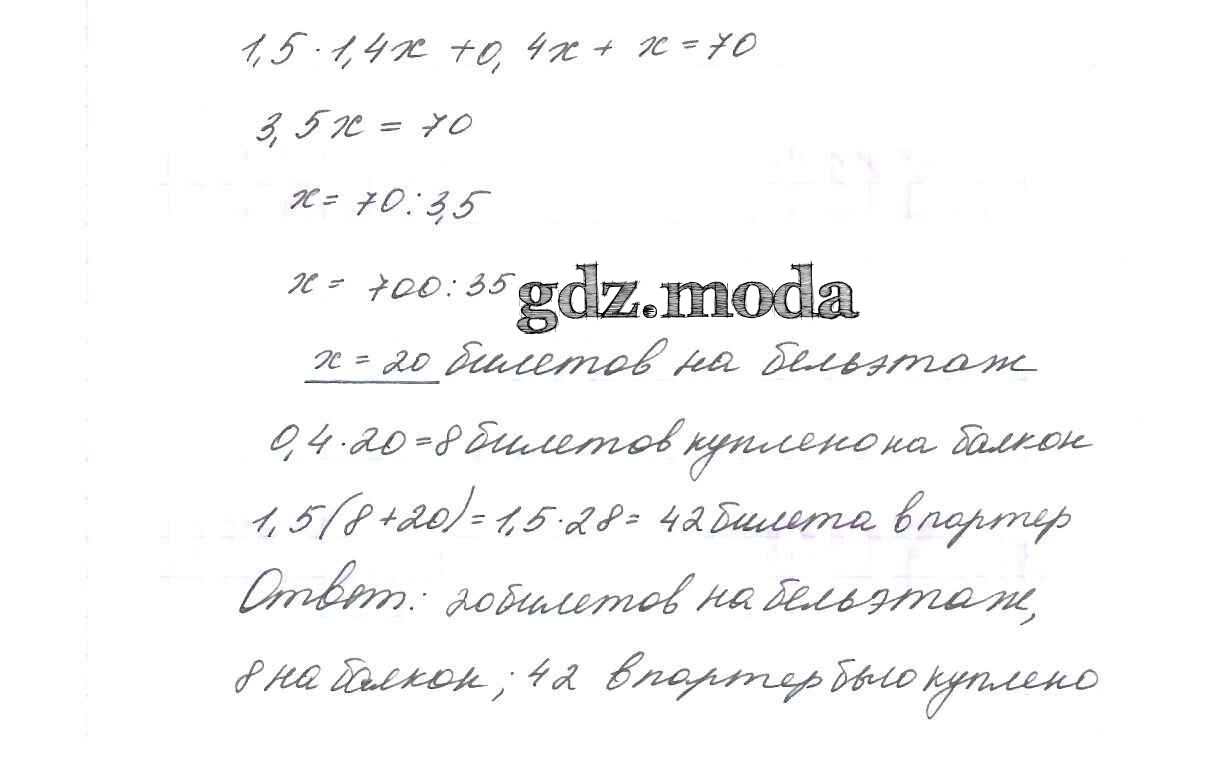 1,5 · 1,4x + 0,4x + x = 70
3,5x = 70
x = 70 : 3,5
x = 700 : 35
gdz.moda
x = 20 билетов на бельэтаж
0,4 · 20 = 8 билетов куплено на балкон
1,5(8+20) = 1,5 · 28 = 42 билета в партер
Ответ: 20 билетов на бельэтаж,
8 на балкон; 42 в партер было куплено